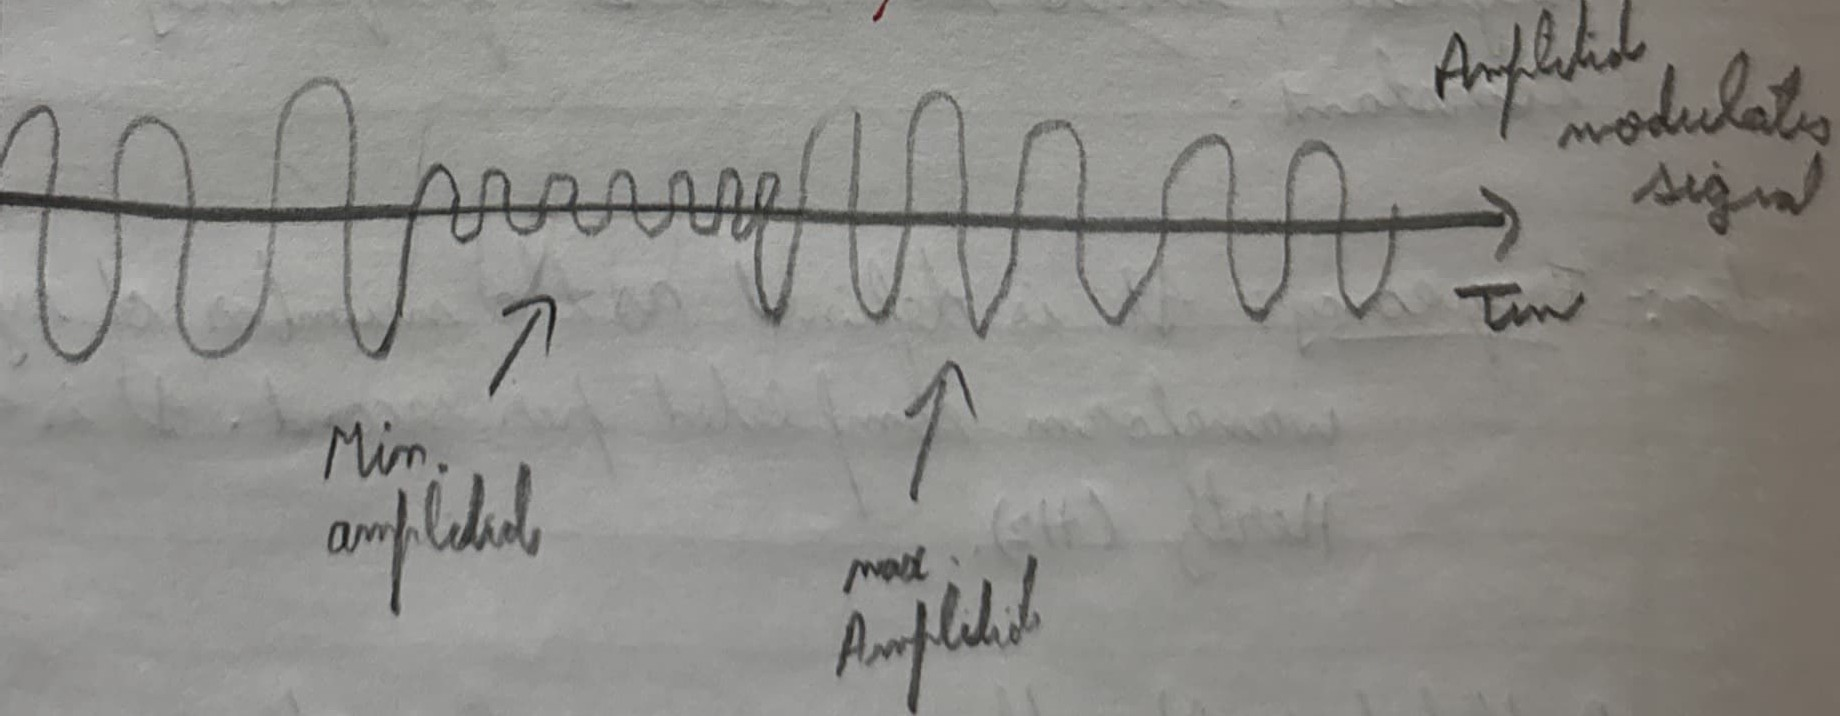 Amplitude
modulates
signal
Time
Min.
amplitude
max.
Amplitude